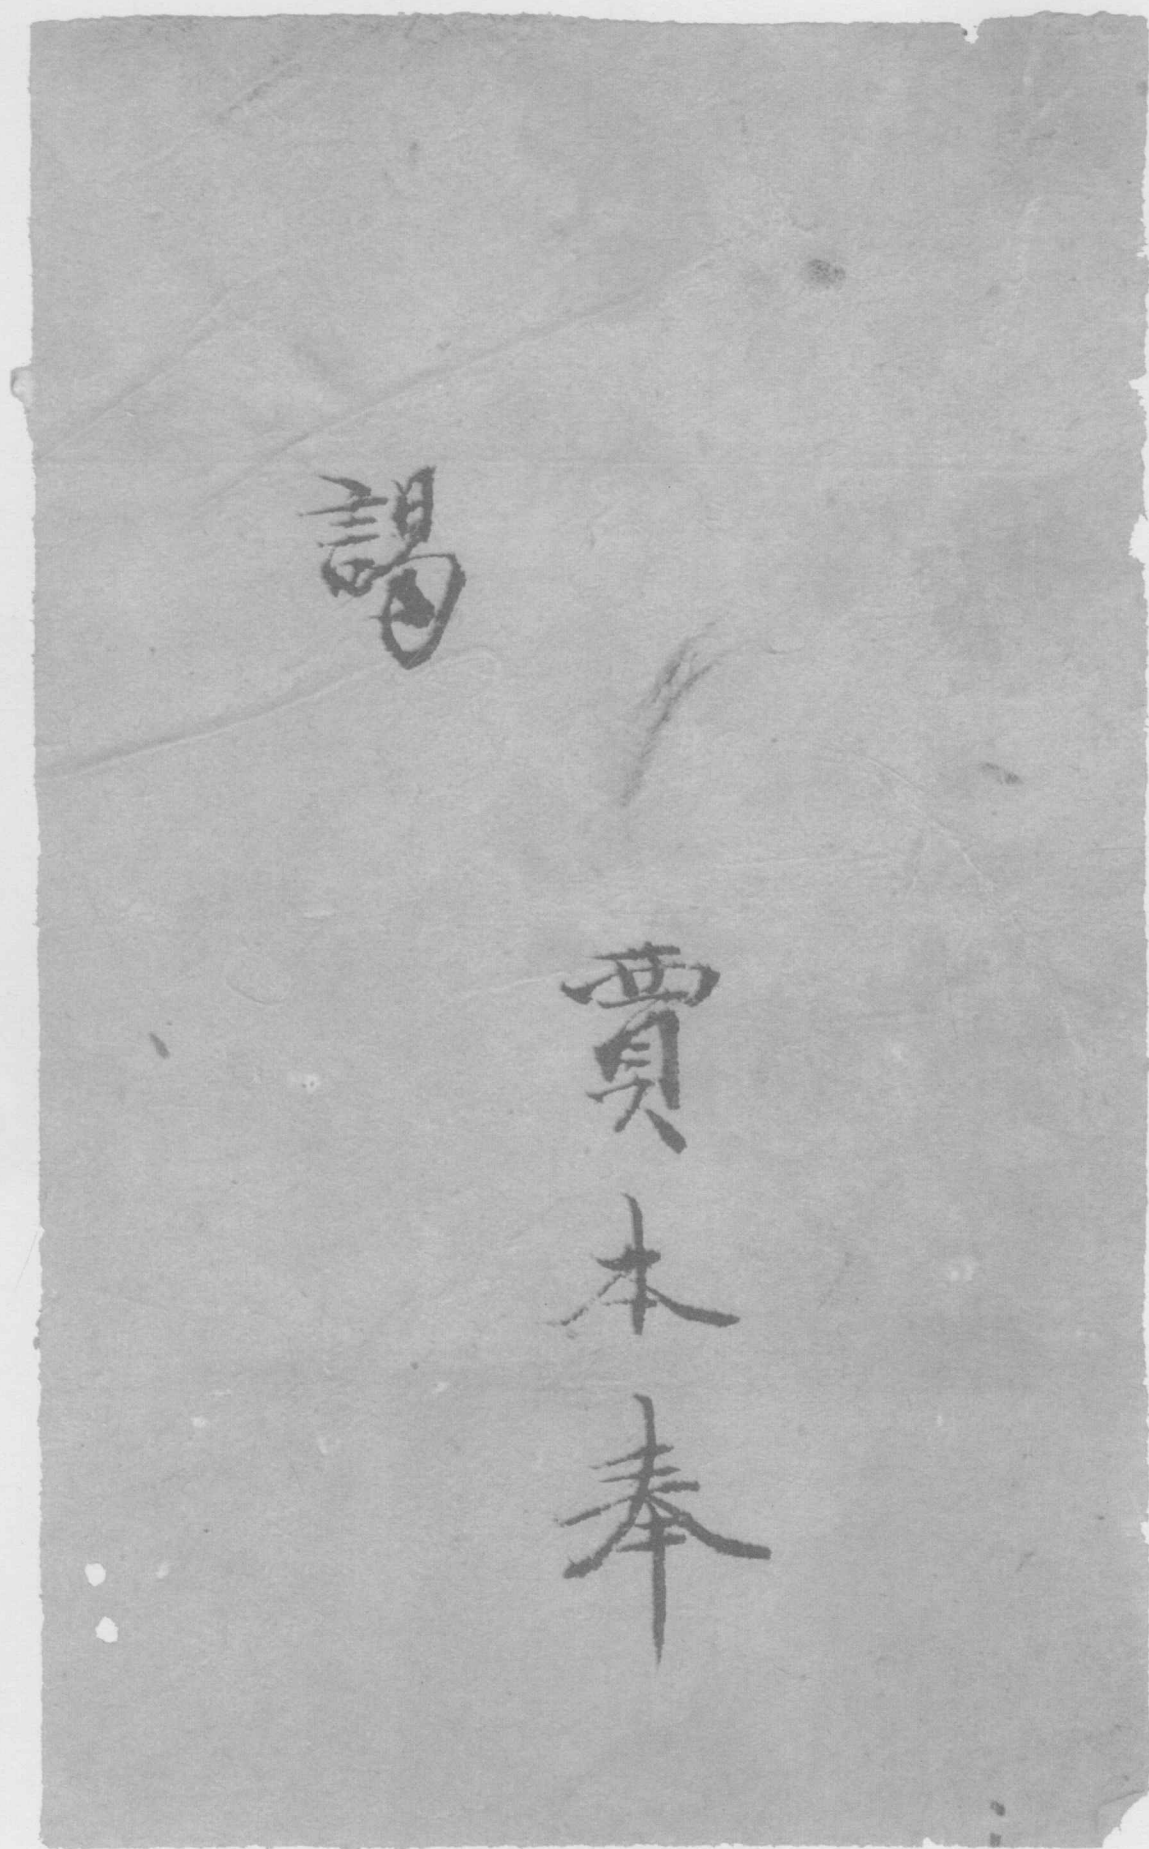 賈本奉
謁